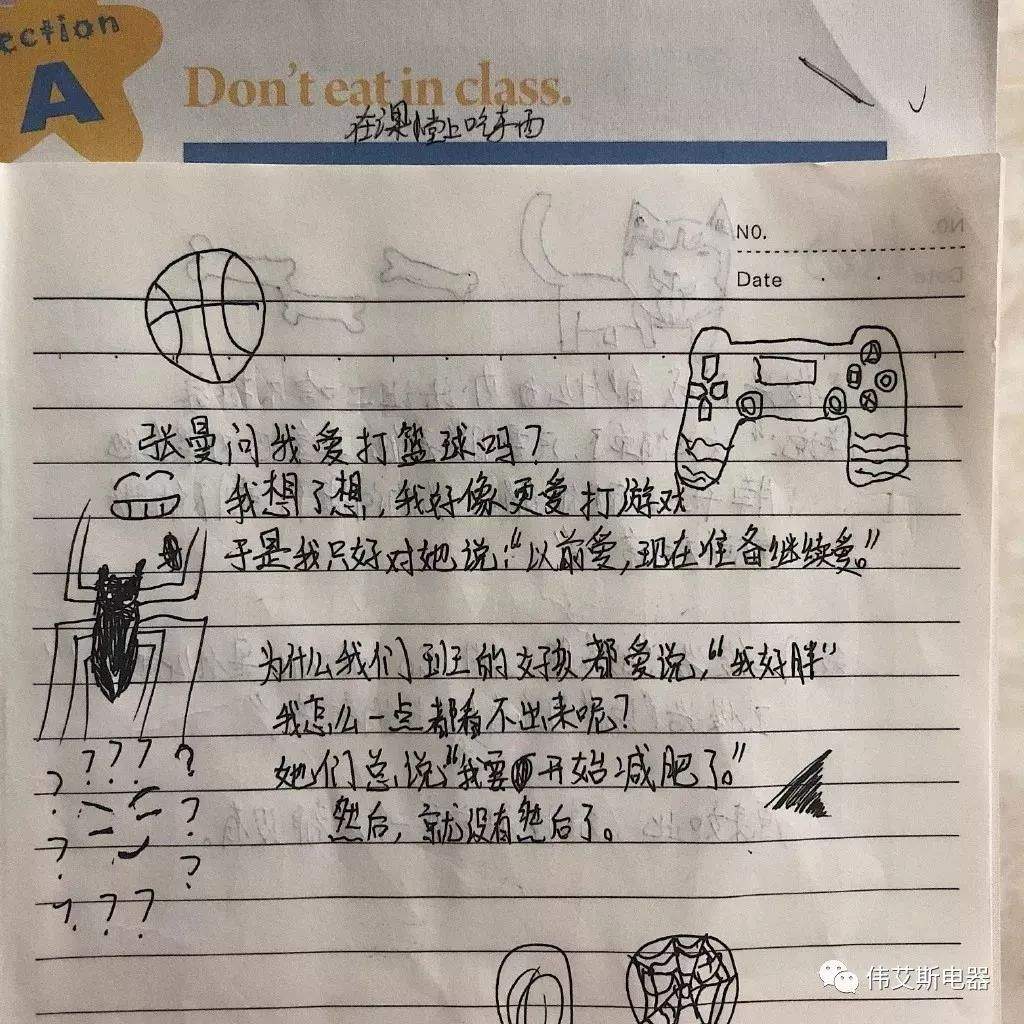 ection
A
Don't eat in class.
在课堂上吃东西
NO.
Date
张曼问我爱打篮球吗？
我想了想，我好像更爱打游戏
于是我只好对她说：“以前爱，现在准备继续爱。”
为什么我们班的女孩都爱说，“我好胖”
我怎么一点都看不出来呢？
她们总说“我要开始减肥了。”
然后，就没有然后了。
? ? ? ?
? ?
? ?
? ? ?
伟艾斯电器